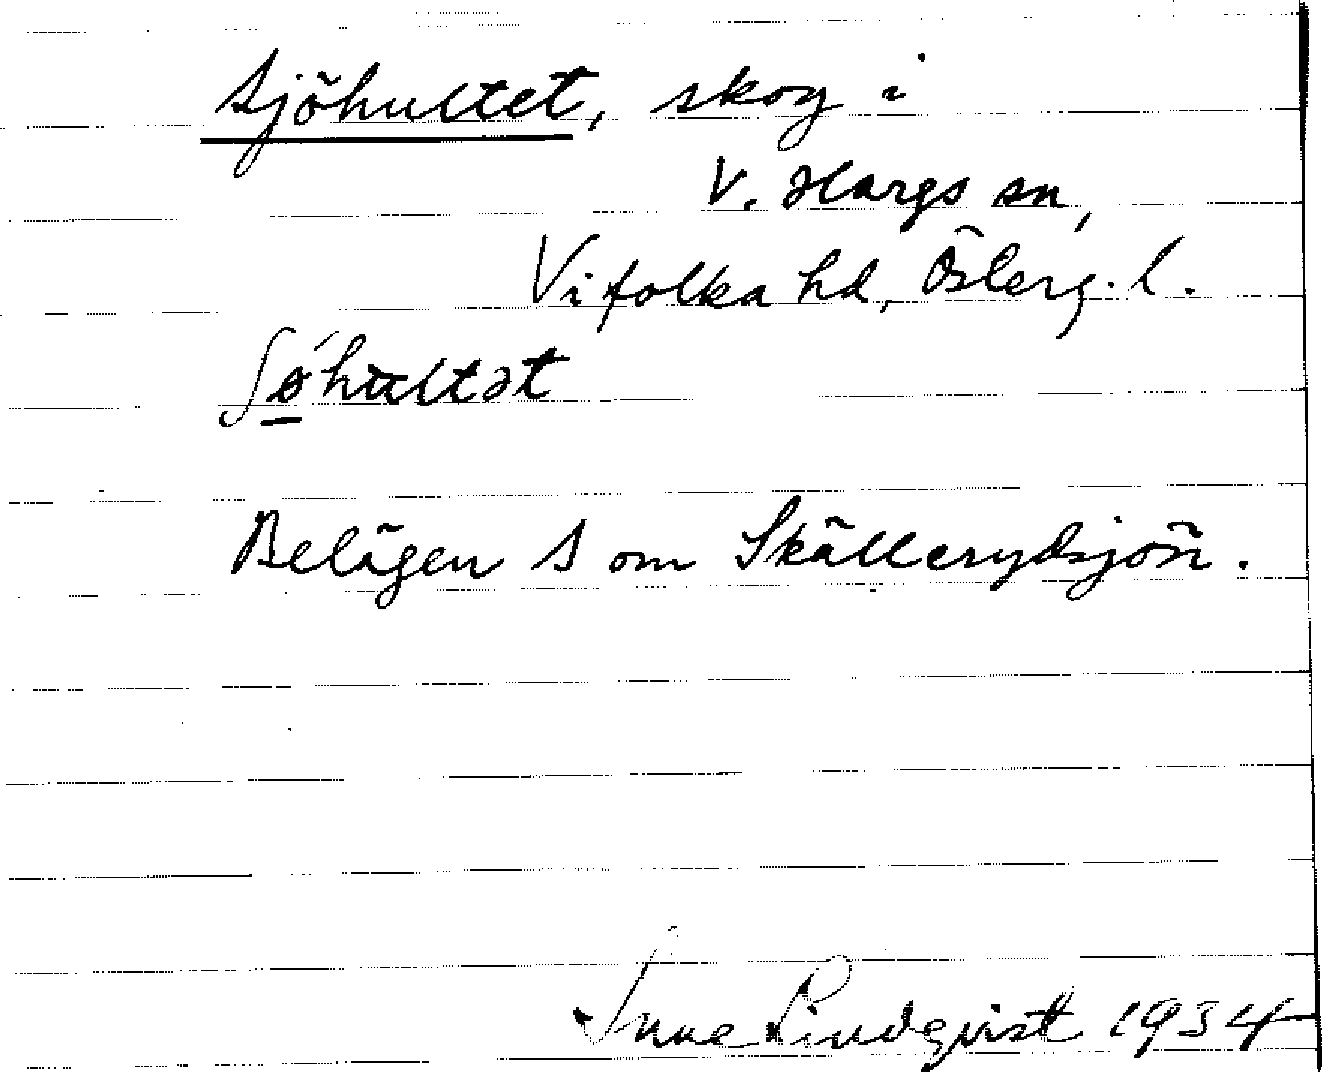 Sjöhultet, skog i
V. Hargs sn,
Vifolka hd, Österg. l.
ʃǿhultət
Belägen S om Skällerydsjön.
Lindqvist 1934